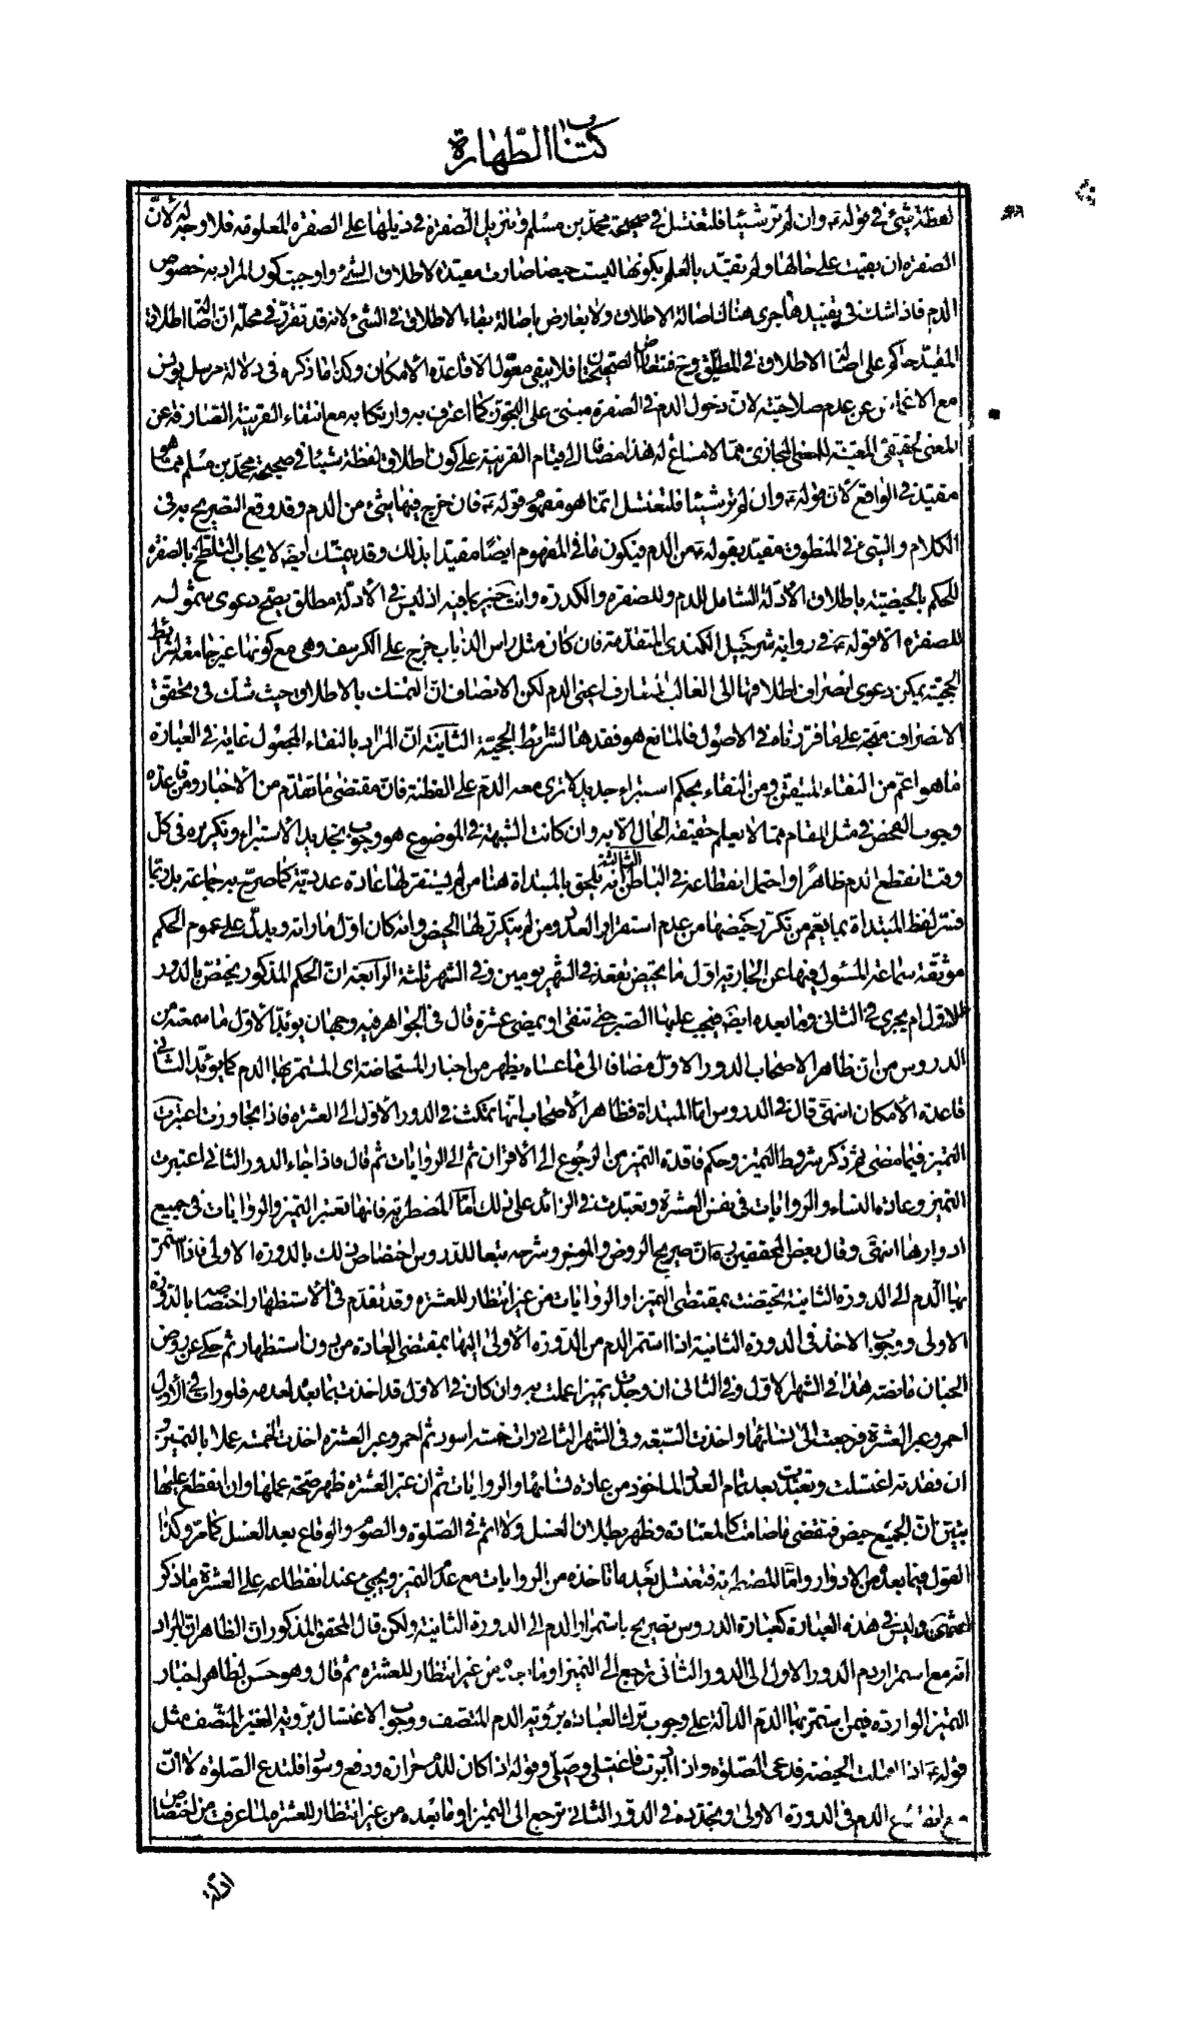 كتاب الطهارة
لفظة شئ في قوله ع وان لم تر شيئا فلتغتسل في صحيحة محمد بن مسلم وتنزيل الصفرة في ذيلها على الصفرة المعلومة فلا وجه له لأنّ
الصفرة ان بقيت على حالها ولم تقيّد بالعلم بكونها ليست حيضا صارت مقيّدة لاطلاق الشئ واوجبت كون المراد به خصوص
الدم فاذا شك في تقييدها جرى هناك اصالة الاطلاق ولا يعارض باصالة بقاء الاطلاق في الشئ لانه قد تقرّر في محلّه ان اصالة اطلاق
المقيّد حاكم على اصالة الاطلاق في المطلق وح فتعارض الصحيحتا فلا يبقى معوّل الا قاعدة الأمكان وكذا ما ذكره في دلالة مرسل يونس
مع الاغماض عن عدم صلاحيته لان دخول الدم في الصفرة مبنى على التجوّز كما اعترف به وارتكابه مع انتفاء القرينة الصّارفة عن
المعنى الحقيقي المعيّنة للمعنى المجازي ممّا لا مساغ له هذا مضافا الى قيام القرينة على كون اطلاق لفظة شيئا في صحيحة محمد بن مسلم ممّا هو
مقيّد في الواقع لان قوله ع وان لم تر شيئا فلتغتسل انما هو مفهوم قوله ع فان خرج فيها شئ من الدم وقد وقع التصريح به في
الكلام والشئ في المنطوق مقيّد بقوله ع من الدم فيكون ما في المفهوم ايضًا مقيّدا بذلك وقد يتمسّك ايضا لايجاب التلطّخ بالصفرة
للحكم بالحيضيّة باطلاق الأدلّة الشامل للدم وللصفرة والكدرة وانت خبير بما فيه اذ ليس في الأدلّة مطلق يصح دعوى شموله
للصفرة الا قوله ع في رواية شرحبيل الكندى المتقدّمة فان كان مثل راس الذباب خرج على الكرسف وهى مع كونها غير جامعة لشرائط
الحجيّة يمكن دعوى انصراف اطلاقها الى الغالب المتعارف اعنى الدم لكن الانصاف ان التمسّك بالاطلاق حيث شك في تحقق
الانصراف متجه على ما قرّرناه في الاصول فالمانع هو فقدها لشرائط الحجيّة الثّانية ان المراد بالنقاء المجعول غاية في العبارة
ما هو اعمّ من النقاء المتيقن ومن النقاء بحكم استبراء جديد لا ترى معه الدّم على القطنة فان مقتضى ما تقدّم من الأخبار ومن قاعدة
وجوب الفحص في مثل المقام ممّا لا يعلم حقيقة الحال الا به وان كانت الشبهة في الموضوع هو وجوب تجديد الأستبراء وتكريره في كلّ
وقت انقطع الدم ظاهرًا واحتمل انقطاعه في الباطن الثالثة انه يلحق بالمبتداة هنا من لم يستقر لها عادة عدديّة كما صرّح به جماعة بل ربّما
فسّر لفظ المبتداة بما يعم من تكرّر حيضها من عدم استقرار العدد ومن لم يتكرّر لها الحيض وانه كان اوّل ما راته ويدلّ على عموم الحكم
موثّقة سماعة المسئول فيها عن الجارية اوّل ما تحيض تقعد في الشهر يومين وفي الشهر ثلثة الرّابعة انّ الحكم المذكور يختصّ بالدور
الاوّل ام يجرى في الثاني وما بعده ايضا فيجب عليها الصّبر حتى تنقى او يمضى عشرة قال في الجواهر فيه وجهان يؤيّد الاوّل ما سمعته من
الدروس من ان ظاهر الاصحاب الدور الاوّل مضافا الى ما عساه يظهر من اخبار المستحاضة اى المستمر بها الدم كما يؤيّد الثاني
قاعدة الأمكان انتهى قال في الدروس امّا المبتداة فظاهر الأصحاب انّها تمكث في الدور الأوّل الى العشرة فاذا تجاوزت اعتبرت
التميز فيما مضى ثم ذكر شروط التميز وحكم فاقدة التميز من الرجوع الى الأقران ثم الى الروايات ثم قال فاذا جاء الدور الثاني اعتبرت
التميز وعادة النساء والروايات في نفس العشرة وتعبّدت في الزائد على ذلك امّا المضطربة فانّها تعتبر التميز والروايات في جميع
ادوارها انتهى وقال بعض المحققين ره ان صريح الروض والموجز وشرحه تبعا للدروس اختصاص ذلك بالدورة الاولى فاذا استمرّ
بها الدم الى الدورة الثانية تحيّضت بمقتضى التميز او الروايات من غير انتظار للعشرة وقد تقدّم في الأستظهار اختصاصه بالدّورة
الاولى ووجوب الاخذ في الدورة الثانية اذا استمر الدم من الدّورة الأولى اليها بمقتضى العادة من دون استظهار ثم حكى عن روض
الجنان ما نصّه هذا في الشهر الاوّل وفي الثاني ان وجدت تميزا عملت به وان كان في الاوّل قد اخذت بما بعده لعدمه فلو رات في الأوّل
احمر وعبر العشرة فرجعت الى نسائها واخذت السّبعة وفي الشهر الثاني رات خمسة اسود ثم احمر وعبر العشرة اخذت الخمسة عملا بالتميز و
ان فقدته اغتسلت وتعبّدت بعد تمام العدد الماخوذ من عادة نسائها والروايات ثم ان عبر العشرة ظهر صحّة عملها وان انقطع عليها
تبيّن ان الجميع حيض فتقضى ما صامت كالمعتادة وظهر بطلان الغسل ولا اثم في الصّلوة والصّوم والوقاع بعد الغسل كما مرّ وكذا
القول فيما بعده من الادوار وامّا المضطربة فتغتسل بعد ما تاخذه من الروايات مع عدم التميز ويجئ عند انقطاعه على العشرة ما ذكر
انتهى وليس في هذه العبارة كعبارة الدروس تصريح باستمرار الدم الى الدورة الثانية ولكن قال المحقق المذكور ان الظاهر ان المراد
انه مع استمرار دم الدور الاول الى الدور الثاني ترجع الى التميز او ما بعده من غير انتظار للعشرة ثم قال وهو حسن لظاهر اخبار
التميز الواردة فيمن استمر بها الدّم الدالّة على وجوب ترك العبادة برؤية الدم المتّصف ووجوب الاغتسال برؤية الغير المتّصف مثل
قوله ع اذا اقبلت الحيضة فدعى الصّلوة واذا ادبرت فاغتسلى وصلّى وقوله اذا كان للدم حرارة ودفع وسواد فلتدع الصّلوة لا انّ
مع انقطاع الدم في الدورة الاولى وتجدّده في الدّور الثاني ترجع الى التميز او ما بعده من غير انتظار للعشرة لما عرفت من اختصاص
ادلّة